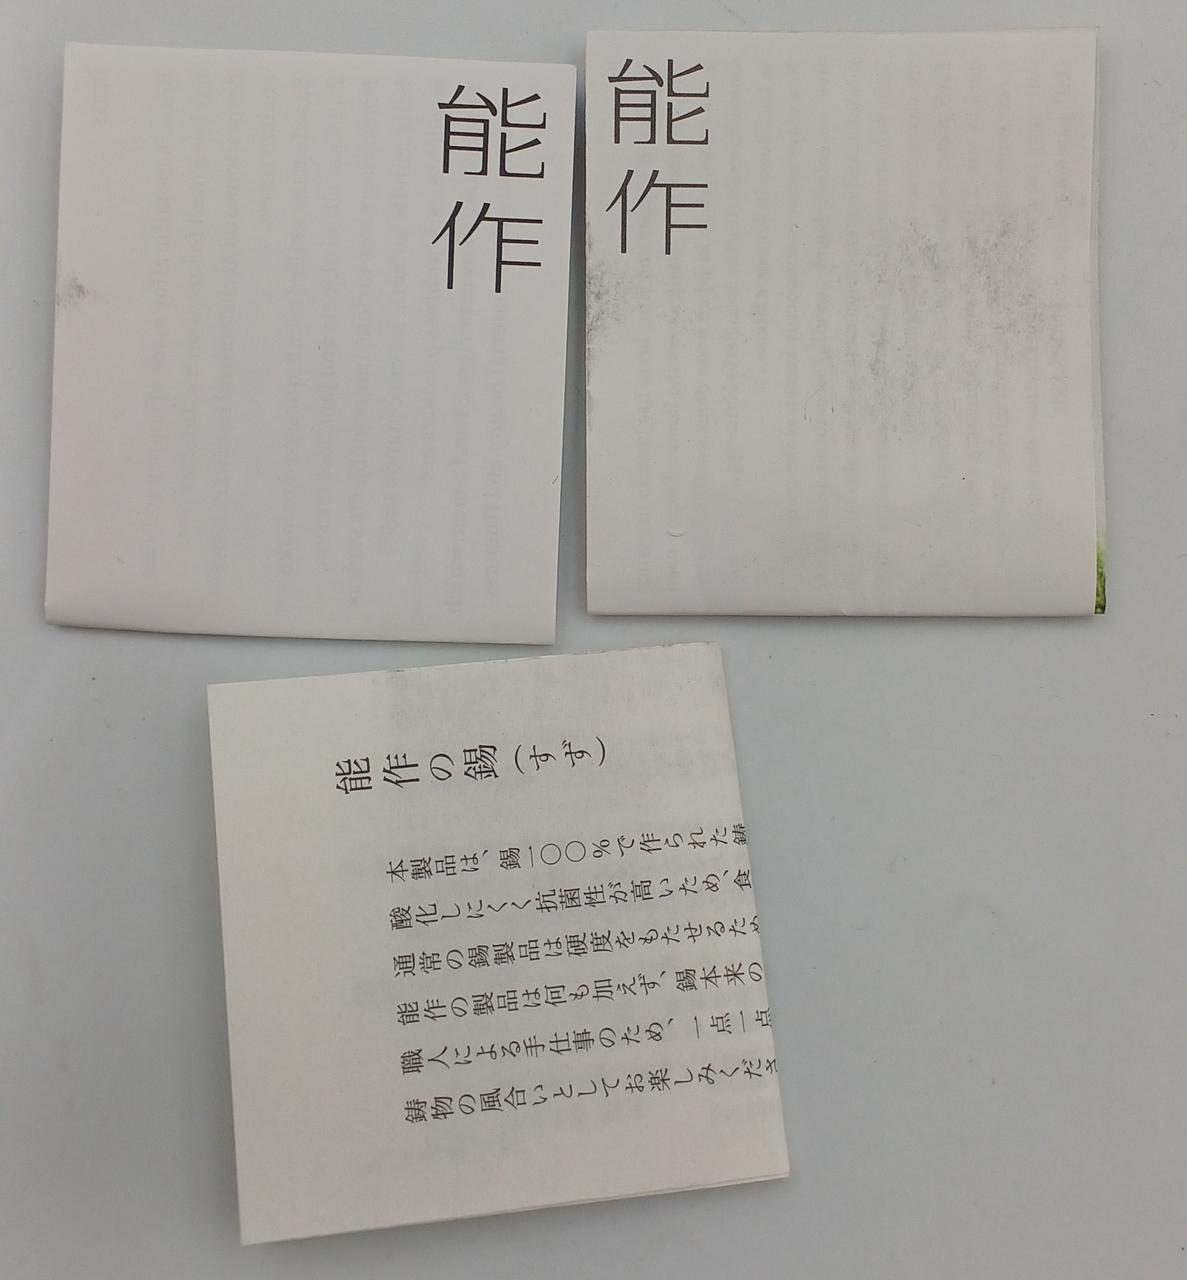 能作
能作
能作の錫(すず)
本製品は、錫一〇〇%で作られた鋳
酸化しにくく抗菌性が高いため、食
通常の錫製品は硬度をもたせるため
能作の製品は何も加えず、錫本来の
職人による手仕事のため、一点一点
鋳物の風合いとしてお楽しみくださ